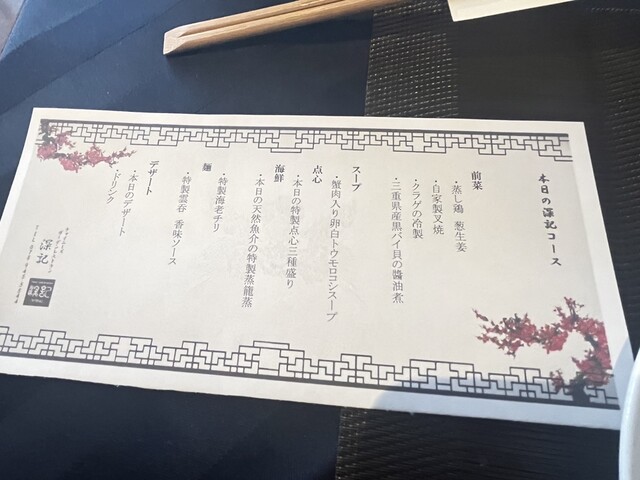 本日の深記コース
前菜
・蒸し鶏 葱生姜
・自家製叉焼
・クラゲの冷製
・三重県産黒バイ貝の醬油煮
スープ
・蟹肉入り卵白トウモロコシスープ
点心
・本日の特製点心三種盛り
海鮮
・本日の天然魚介の特製蒸籠蒸
・特製海老チリ
麺
・特製雲吞 香味ソース
デザート
・本日のデザート
・ドリンク
深記